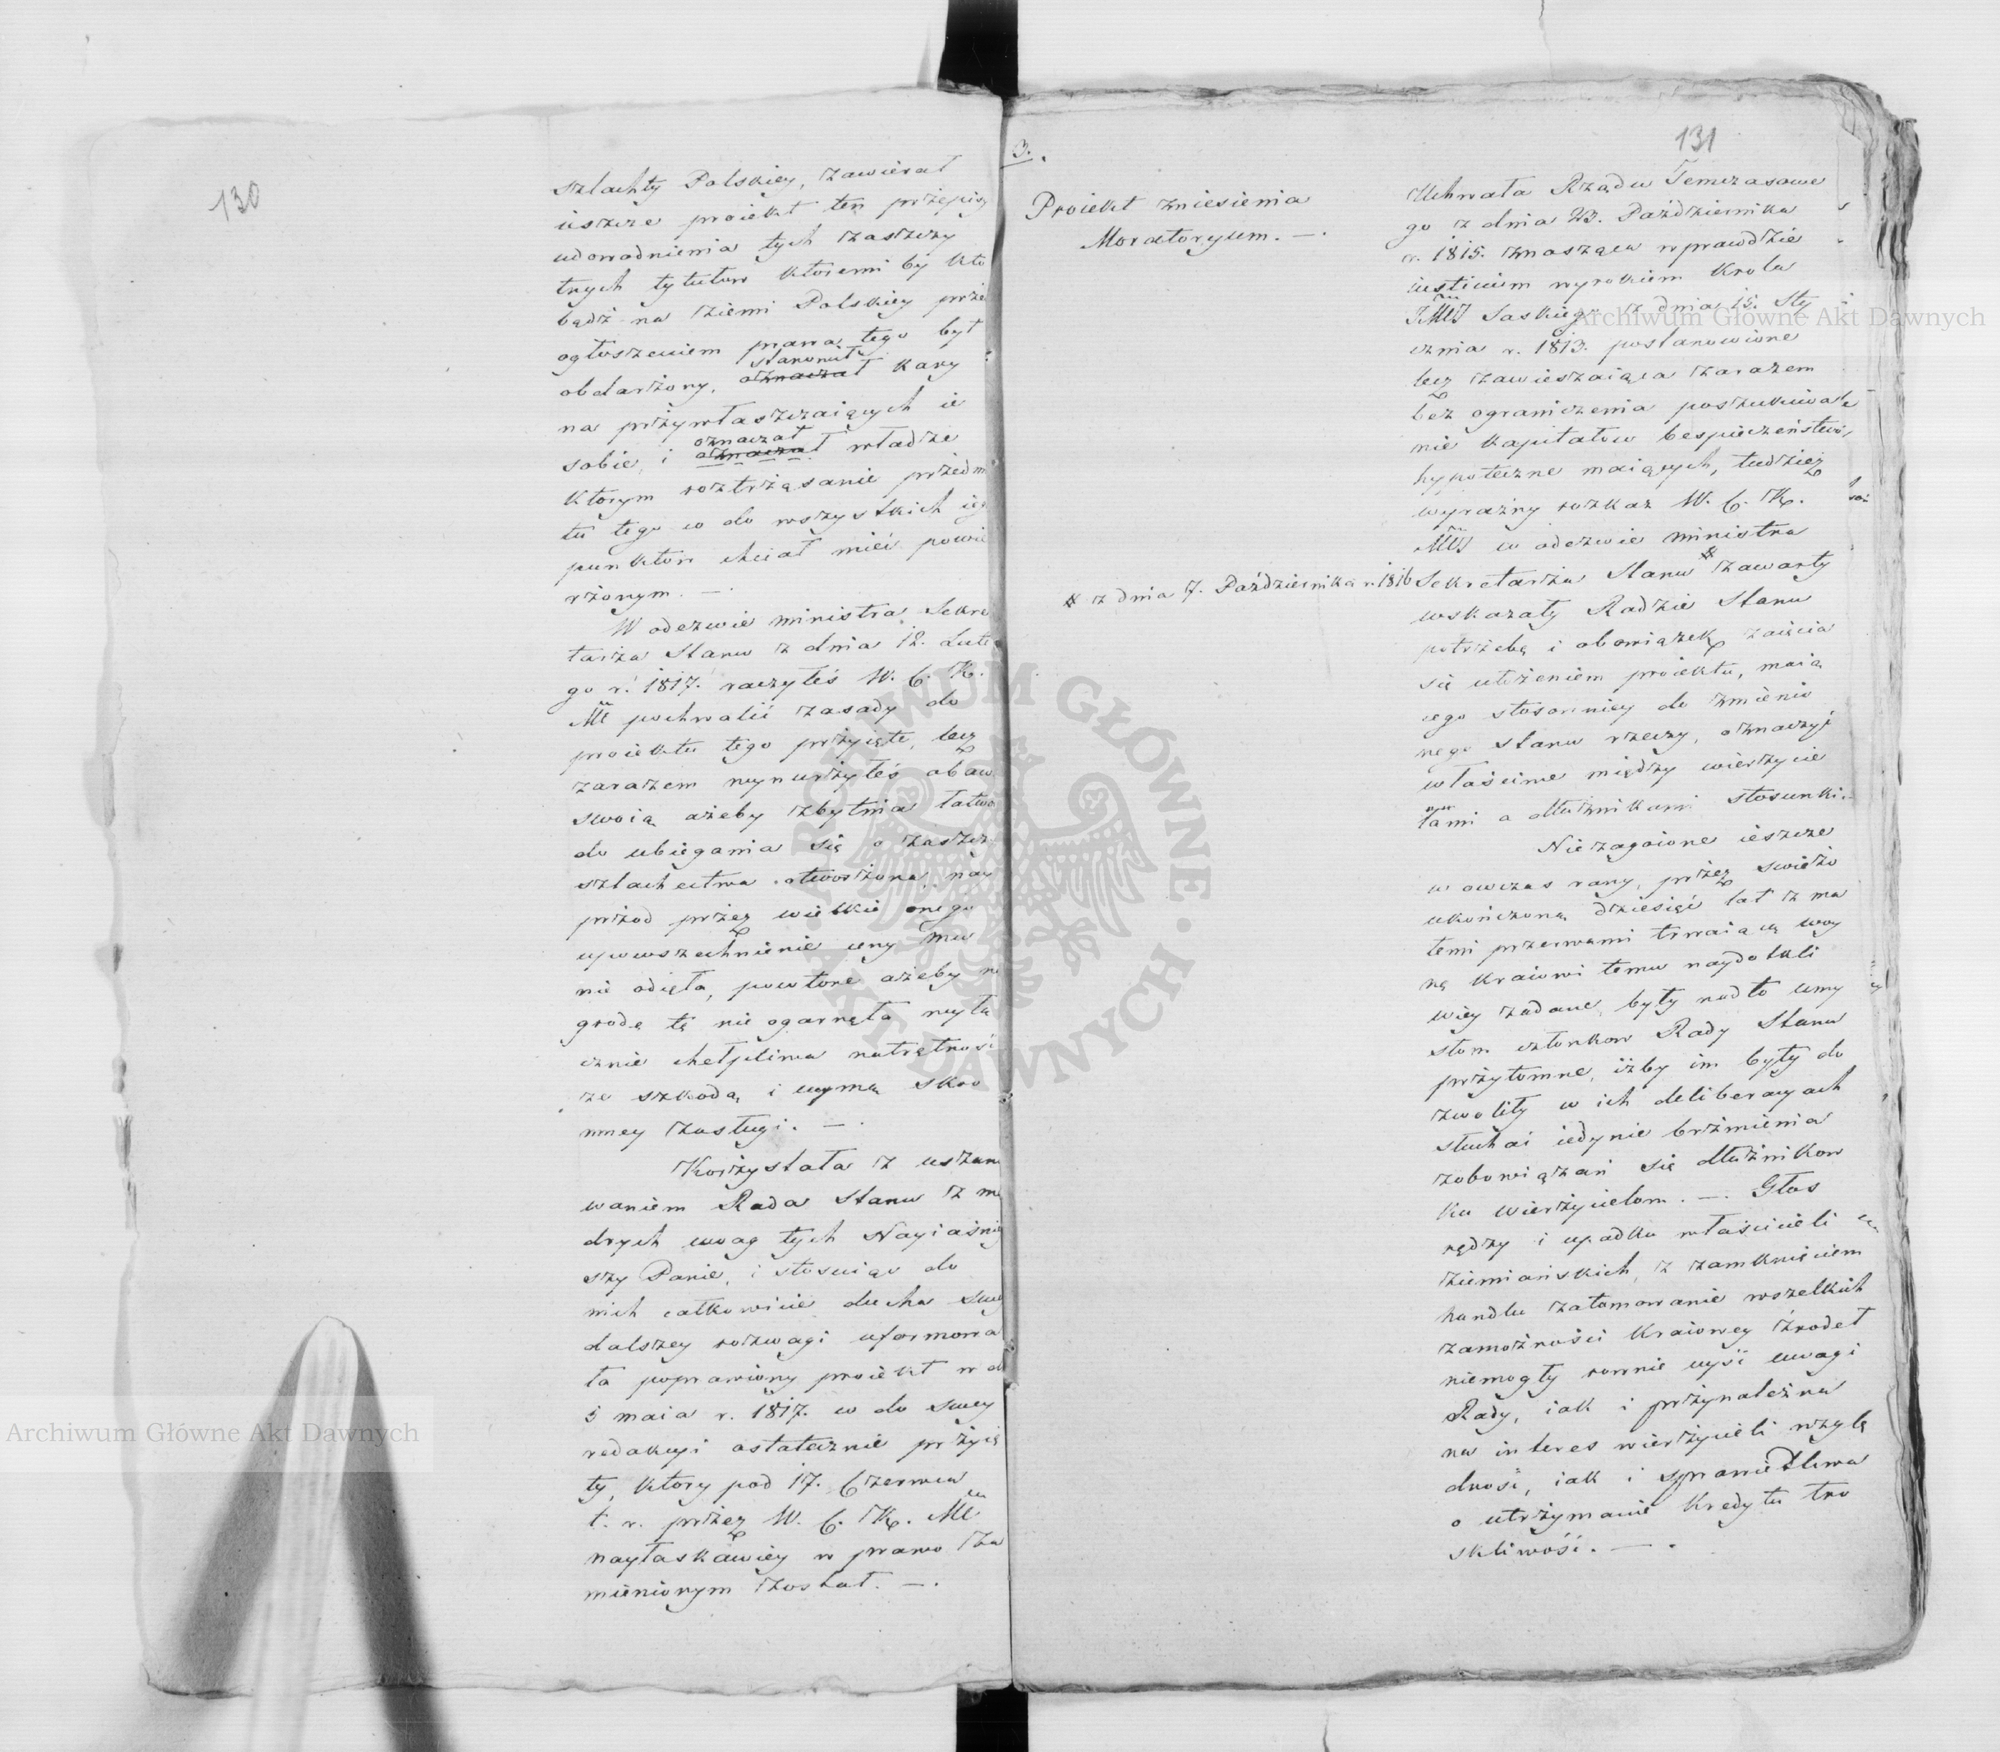 130
szlachty Polskiey, zawierał
ieszcze proiekt ten przepisy
udowodnienia tych zaszczy
tnych tytułow ktoremi by kto
bądź na ziemi Polskiey prze
ogłoszeniem prawa tego był
stanowił
obdarzony, oznaczał kary
na przywłaszczaiących ie
oznaczał
sobie, i oznaczał władze
ktorym roztrząsanie przedm
tu tego w do wszystkich ieg
punktow chciał mieć powie
rzonym. —.
W odezwie ministra Sekre
tarza Stanu z dnia 12. Lute
go r. 1817. raczyłeś W. C. K.
Mć pochwalić zasady do
proiektu tego przyięte, lecz
zarazem wynurzyłeś obaw
swoią ażeby zbytnia łatwo
do ubiegania się o zaszcz
szlachectwa otworzona, nay
przod przez wielkie onego
upowszechnienie ceny mu
nie odięła, powtore ażeby na
grodę tę nie ogarnęła wyłą
cznie chełpliwa natrętność
ze szkodą i uymą skro
mney zasługi. —.
Korzystała z uszano
waniem Rada Stanu z mą
drych uwag tych Nayiaśniey
szy Panie, i stosuiąc do
nich całkowicie ducha swey
dalszey rozwagi uformowa
ła poprawiony proiekt w d
5 maia r. 1817. w do swey
redakcyi ostatecznie przyię
ty, ktory pod 17. Czerwca
t. r. przez W. C. K. Mć
nayłaskawiey w prawo za
mienionym został. —.
131
3.
Proiekt zniesienia
Moratoryum. —.
Uchwała Rządu Temczasowe
go z dnia 23. Października
r. 1815. znosząca wprawdzie
iusticium wyrokiem Krola
JMci Saskiego z dnia 15. Sty
cznia r. 1813. postanowione
lecz zawieszaiąca zarazem
bez ograniczenia poszukiwa
nie kapitałow bespieczeństwo
hypoteczne maiących, tudzież
wyraźny rozkaz W. C. K.
Mci w odezwie ministra
Sekretarza Stanu zawarty
z dnia 7. Października r. 1816
wskazały Radzie Stanu
potrzebę i obowiązek zaięcia
się ułożeniem proiektu, maią
cego stosowniey do zmienio
nego stanu rzeczy, oznaczyć
właściwe między wierzycie
lami a dłużnikami stosunki.
Niezagoione ieszcze
w owczas rany, przez swieżo
ukończoną dziesięć lat z ma
łemi przerwami trwaiącą woy
nę kraiowi temu naydotkli
wiey zadane, były nadto umy
słom członkow Rady Stanu
przytomne, iżby im były do
zwoliły w ich deliberacyach
słuchać iedynie brzmienia
zobowiązań się dłużnikow
ku wierzycielom. —. Głos
nędzy i upadku właścicieli
ziemiańskich, z zamknięciem
handlu zatamowanie wszelkich
zamożności kraiowey źrodeł
niemogły rownie uyść uwagi
Rady, iak i przynależna
na interes wierzycieli wzglę
dność, iak i sprawiedliwa
o utrzymanie kredytu tro
skliwość. —.
Archiwum Główne Akt Dawnych
Archiwum Główne Akt Dawnych
ARCHIWUM GŁÓWNE · AKT DAWNYCH ·